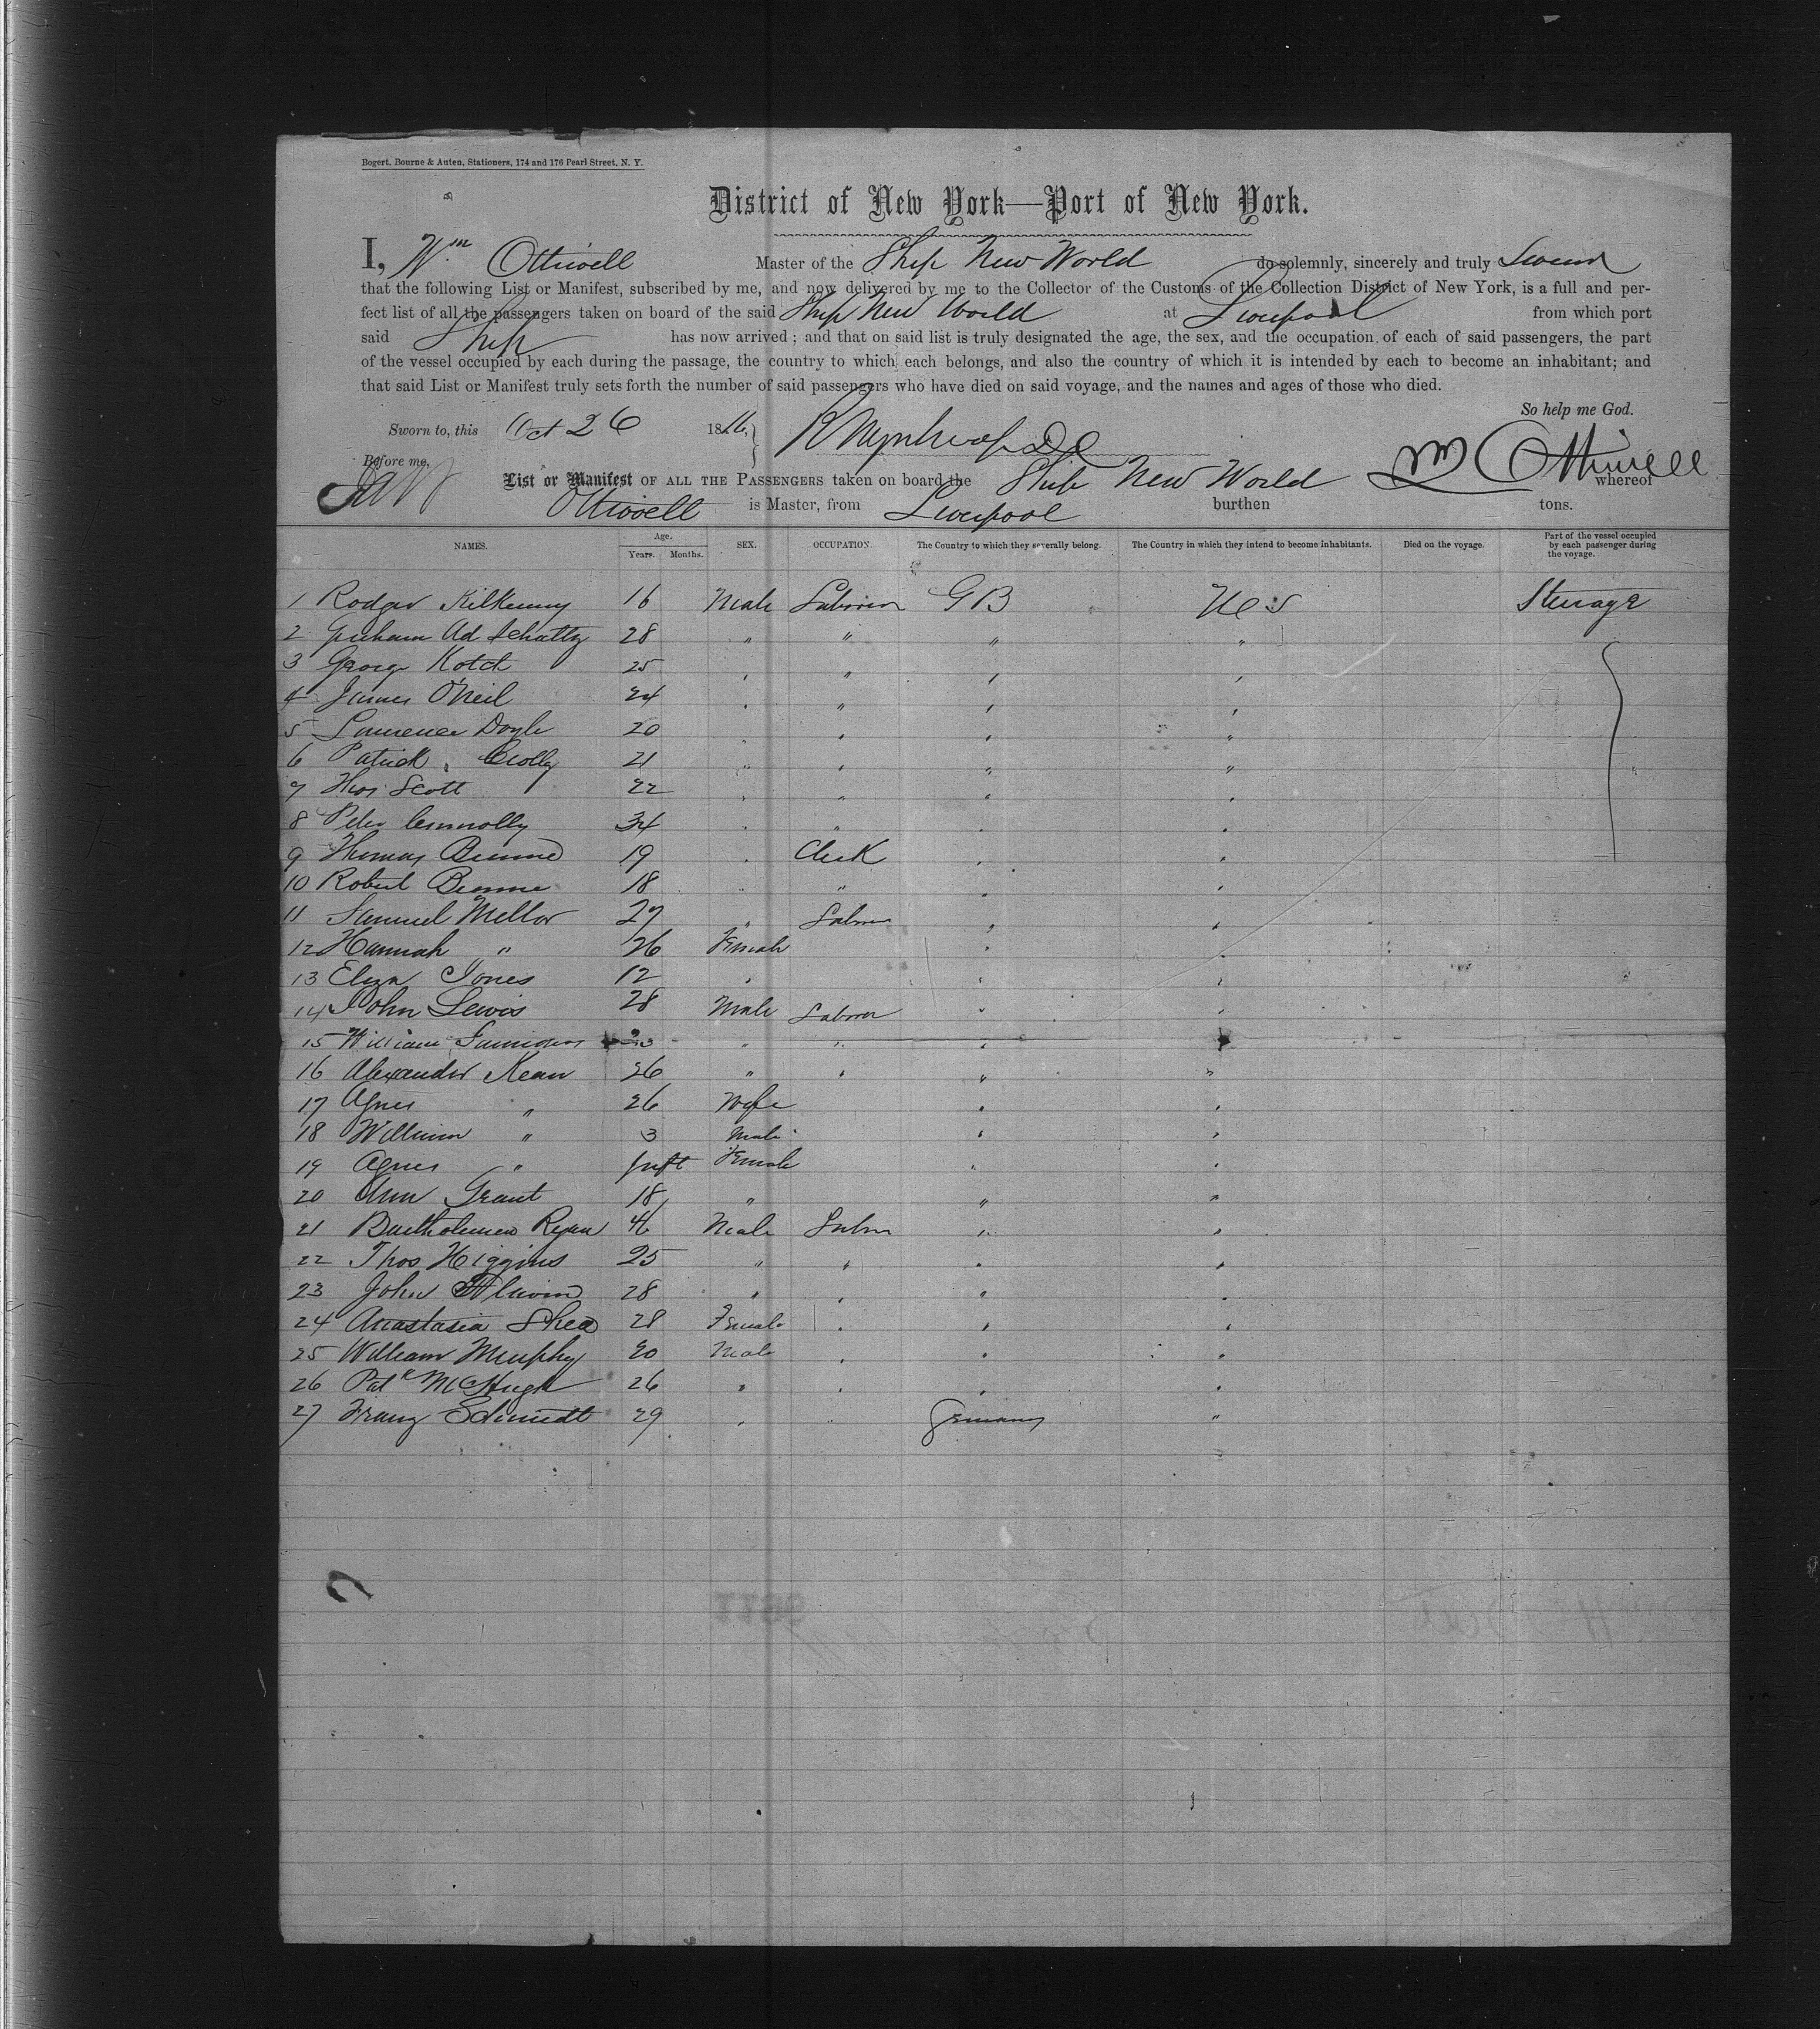 Bogert, Bourne & Auten, Stationers, 174 and 176 Pearl Street, N. Y.
District of New York—Port of New York.
I, Wm Ottiwell Master of the Ship New World do solemnly, sincerely and truly Swear
that the following List or Manifest, subscribed by me, and now delivered by me to the Collector of the Customs of the Collection District of New York, is a full and per-
fect list of all the passengers taken on board of the said Ship New World at Liverpool from which port
said Ship has now arrived; and that on said list is truly designated the age, the sex, and the occupation of each of said passengers, the part
of the vessel occupied by each during the passage, the country to which each belongs, and also the country of which it is intended by each to become an inhabitant; and
that said List or Manifest truly sets forth the number of said passengers who have died on said voyage, and the names and ages of those who died.
So help me God.
Sworn to, this Oct 26 18
Before me, Wm Ottiwell
List or Manifest OF ALL THE PASSENGERS taken on board the Ship New World whereof
Ottiwell is Master, from Liverpool burthen tons.
NAMES. Age. Years. Months. SEX. OCCUPATION. The Country to which they severally belong. The Country in which they intend to become inhabitants. Died on the voyage. Part of the vessel occupied by each passenger during the voyage.
1 Rodger Kilkenny 16 Male Laborer G B U S Steerage
2 28 " " " "
3 George Kotch 25 " " " "
4 James O'Neil 24 " " " "
5 Lawrence Doyle 20 " " " "
6 Patrick 21 " " " "
7 Thos Scott 22 " " " "
8 Peter Connolly 34 " " " "
9 Thomas 19 " Clerk " "
10 Robert 18 " " " "
11 Samuel Mellor 27 " Labrer " "
12 Hannah " 26 Female " "
13 Eliza Jones 12 " " "
14 John Lewis 28 Male Laborer " "
15 William " " " "
16 Alexander Kean 26 " " " "
17 Agnes " 26 Wife " "
18 William " 3 Male " "
19 Agnes " Inft Female " "
20 Ann Grant 18 " " "
21 Bartholomew Ryan Male Labr " "
22 Thos Higgins 25 " " " "
23 John 28 " " " "
24 Anastasia Shea 28 Female " " "
25 William Murphy 20 Male " " "
26 Patk McHugh 26 " " " "
27 Franz Schmidt 29 " " Germany "